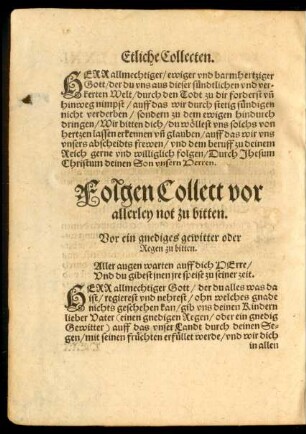 Etliche Collecten.
HERR allmechtiger/ ewiger vnd barmhertziger
Gott/ der du vns aus dieser sündtlichen vnd ver-
kerten Welt/ durch den Todt zu dir forderst vñ
hinweg nimpst/ auff das wir durch stetig sündigen
nicht verderben/ sondern zu dem ewigen hindurch
dringen/ Wir bitten dich/ du wöllest vns solchs von
hertzen lassen erkennen vñ glauben/ auff das wir vns
vnsers abscheidts frewen/ vnd dem beruff zu deinem
Reich gerne vnd williglich folgen/ Durch Jhesum
Christum deinen Son vnsern HErren.
Folgen Collect vor
allerley not zu bitten.
Vor ein gnediges gewitter oder
Regen zu bitten.
Aller augen warten auff dich HErre/
Vnd du gibest jnen jre speise zu seiner zeit.
HERR allmechtiger Gott/ der du alles was da
ist/ regierest vnd nehrest/ ohn welches gnade
nichts geschehen kan/ gib vns deinen Kindern
lieber Vater (einen gnedigen Regen/ oder ein gnedig
Gewitter) auff das vnser Landt durch deinen Se-
gen/ mit seinen früchten erfüllet werde/ vnd wir dich
in allen